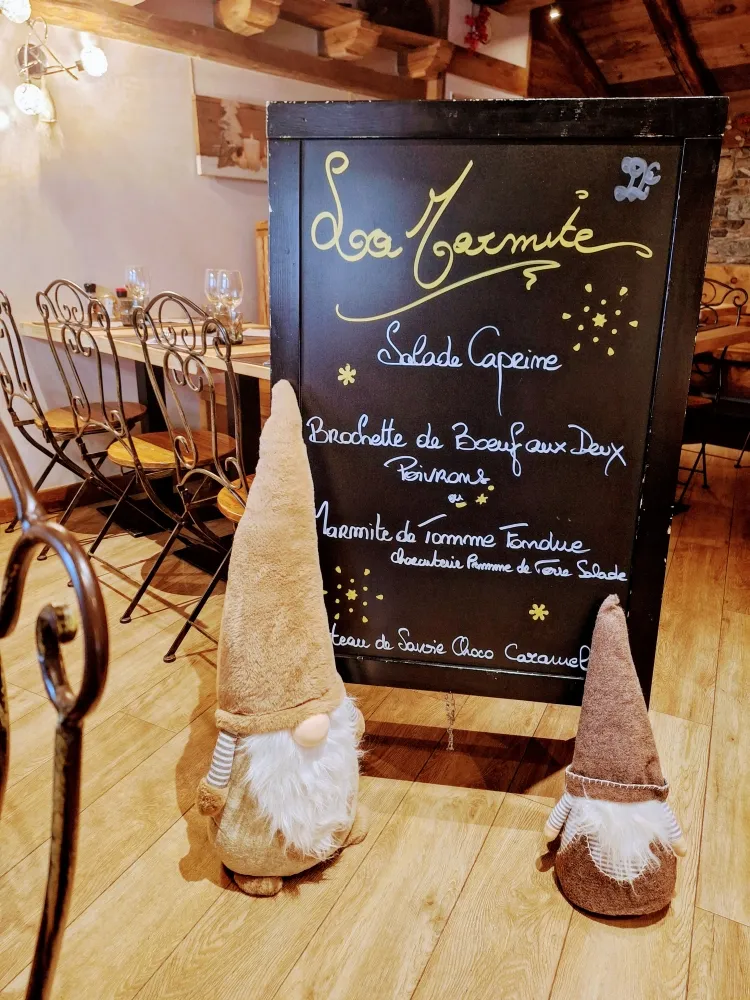 La Marmite
Salade Caprine
Brochette de Boeuf aux Deux
Poivrons
ou
Marmite de Tomme Fondue
Charcuterie Pomme de Terre Salade
teau de Savoie Choco Caramel